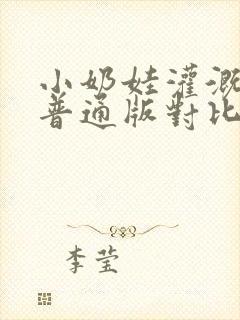 小奶娃灌溉
普通版對比
李莹